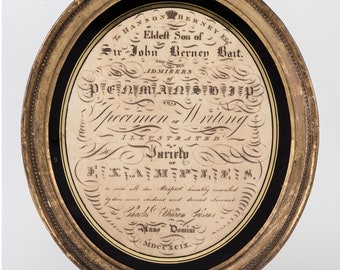 To HANSON BERNEY Esqr.
Eldest Son of
Sir John Berney Bart.
AND THE
ADMIRERS OF
PENMANSHIP
THIS
Specimen OF Writing
ILLUSTRATED
Variety
OF
EXAMPLES,
is with all due Respect humbly inscribed
by their most obedient and devoted Servant
Charles
Anno Domini
MDCCXCIX.